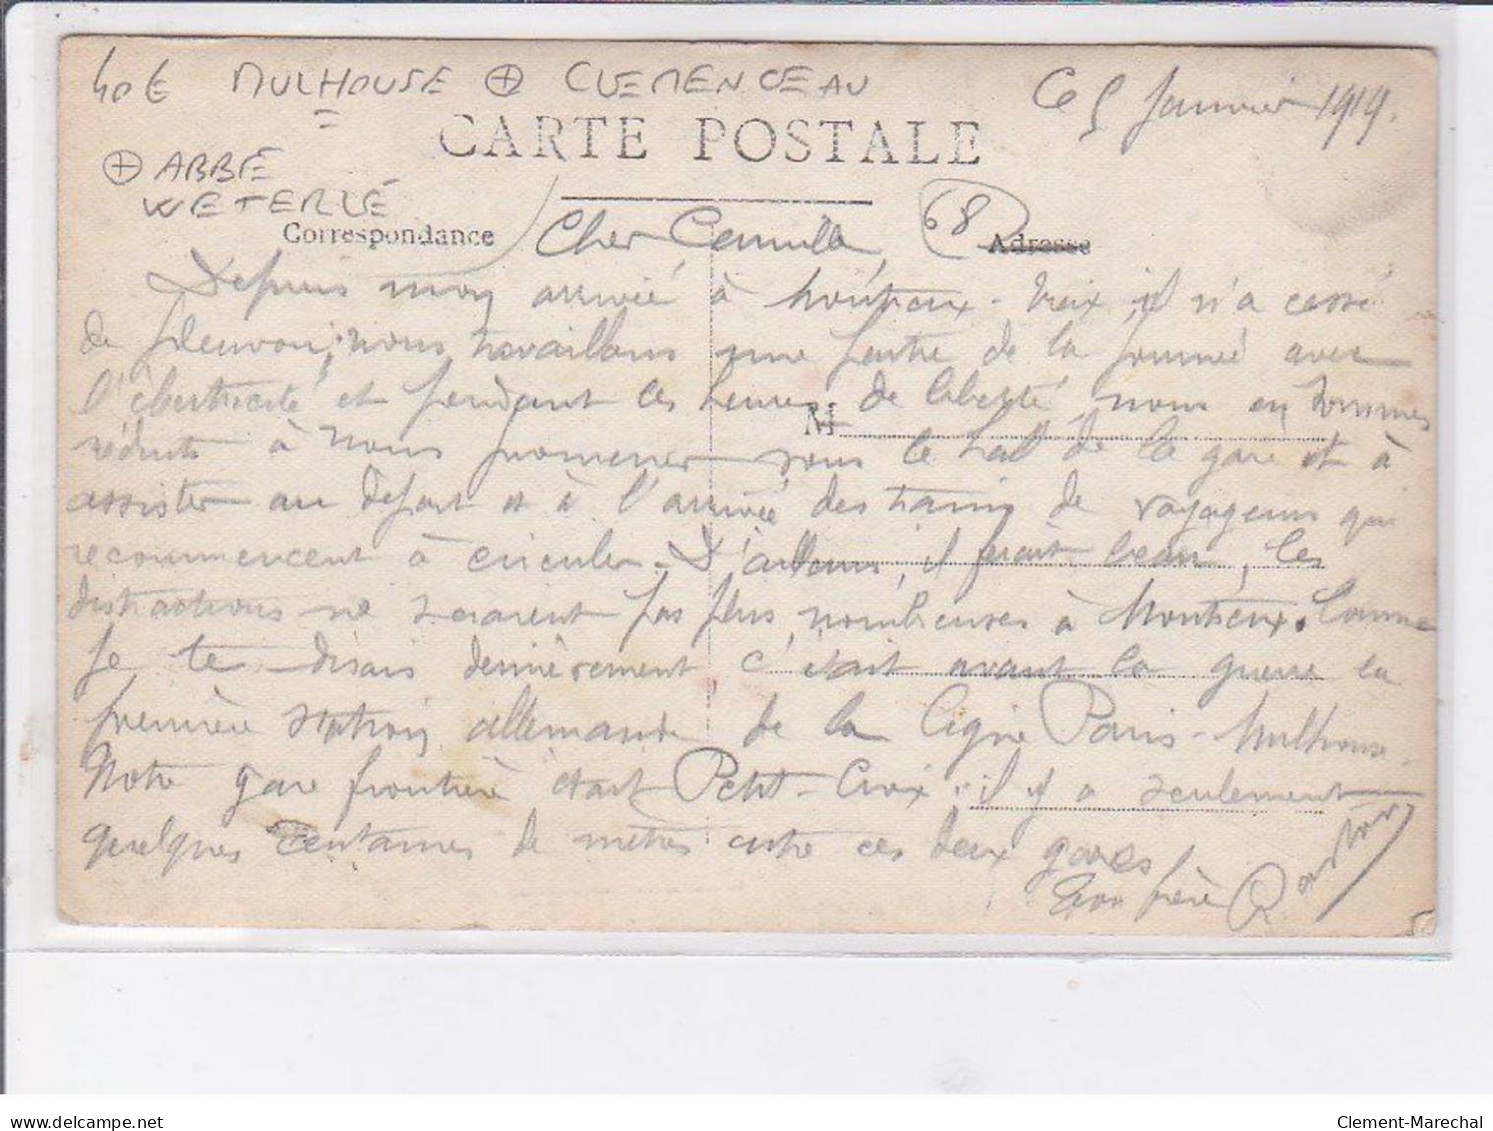 40€ MULHOUSE ⊕ CLEMENCEAU
=
Ce 5 Janvier 1919.
CARTE POSTALE
⊕ ABBÉ
WETERLÉ
Correspondance
Cher Camille
68
Adresse
Depuis mon arrivée à Montreux-Vieux, il n'a cessé
de pleuvoir; nous travaillons une partie de la journée avec
l'électricité et pendant les heures de liberté nous en sommes
M
réduits à nous promener sous le hall de la gare et à
assister au départ et à l'arrivée des trains de voyageurs qui
recommencent à circuler. D'ailleurs, il ferait beau, les
distractions ne seraient pas plus nombreuses à Montreux. Comme
je te disais dernièrement c'était avant la guerre la
première station allemande de la ligne Paris-Mulhouse.
Notre gare frontière était Petit-Croix; il y a seulement
quelques centaines de mètres entre ces deux gares
Ton frère
delcampe.net
Clement-Marechal